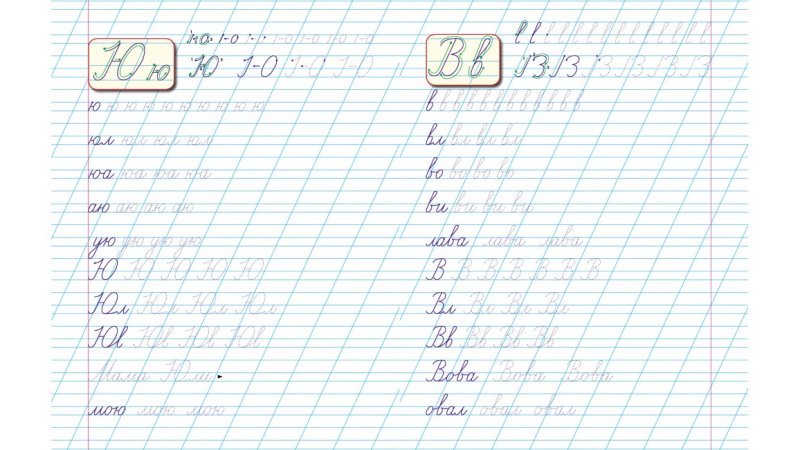 Ю ю
ю ю ю ю ю ю ю ю ю ю
юл юл юл юл
юа юа юа юа
аю аю аю аю
ую ую ую ую
Ю Ю Ю Ю Ю
Юл Юл Юл Юл
Юв Юв Юв Юв
Мама Юли
мою мою мою
В в
в в в в в в в в в в в в
вл вл вл вл
во во во во
ви ви ви ви
лава лава лава
В В В В В В В
Вл Вл Вл Вл
Вв Вв Вв Вв
Вова Вова Вова
овал овал овал